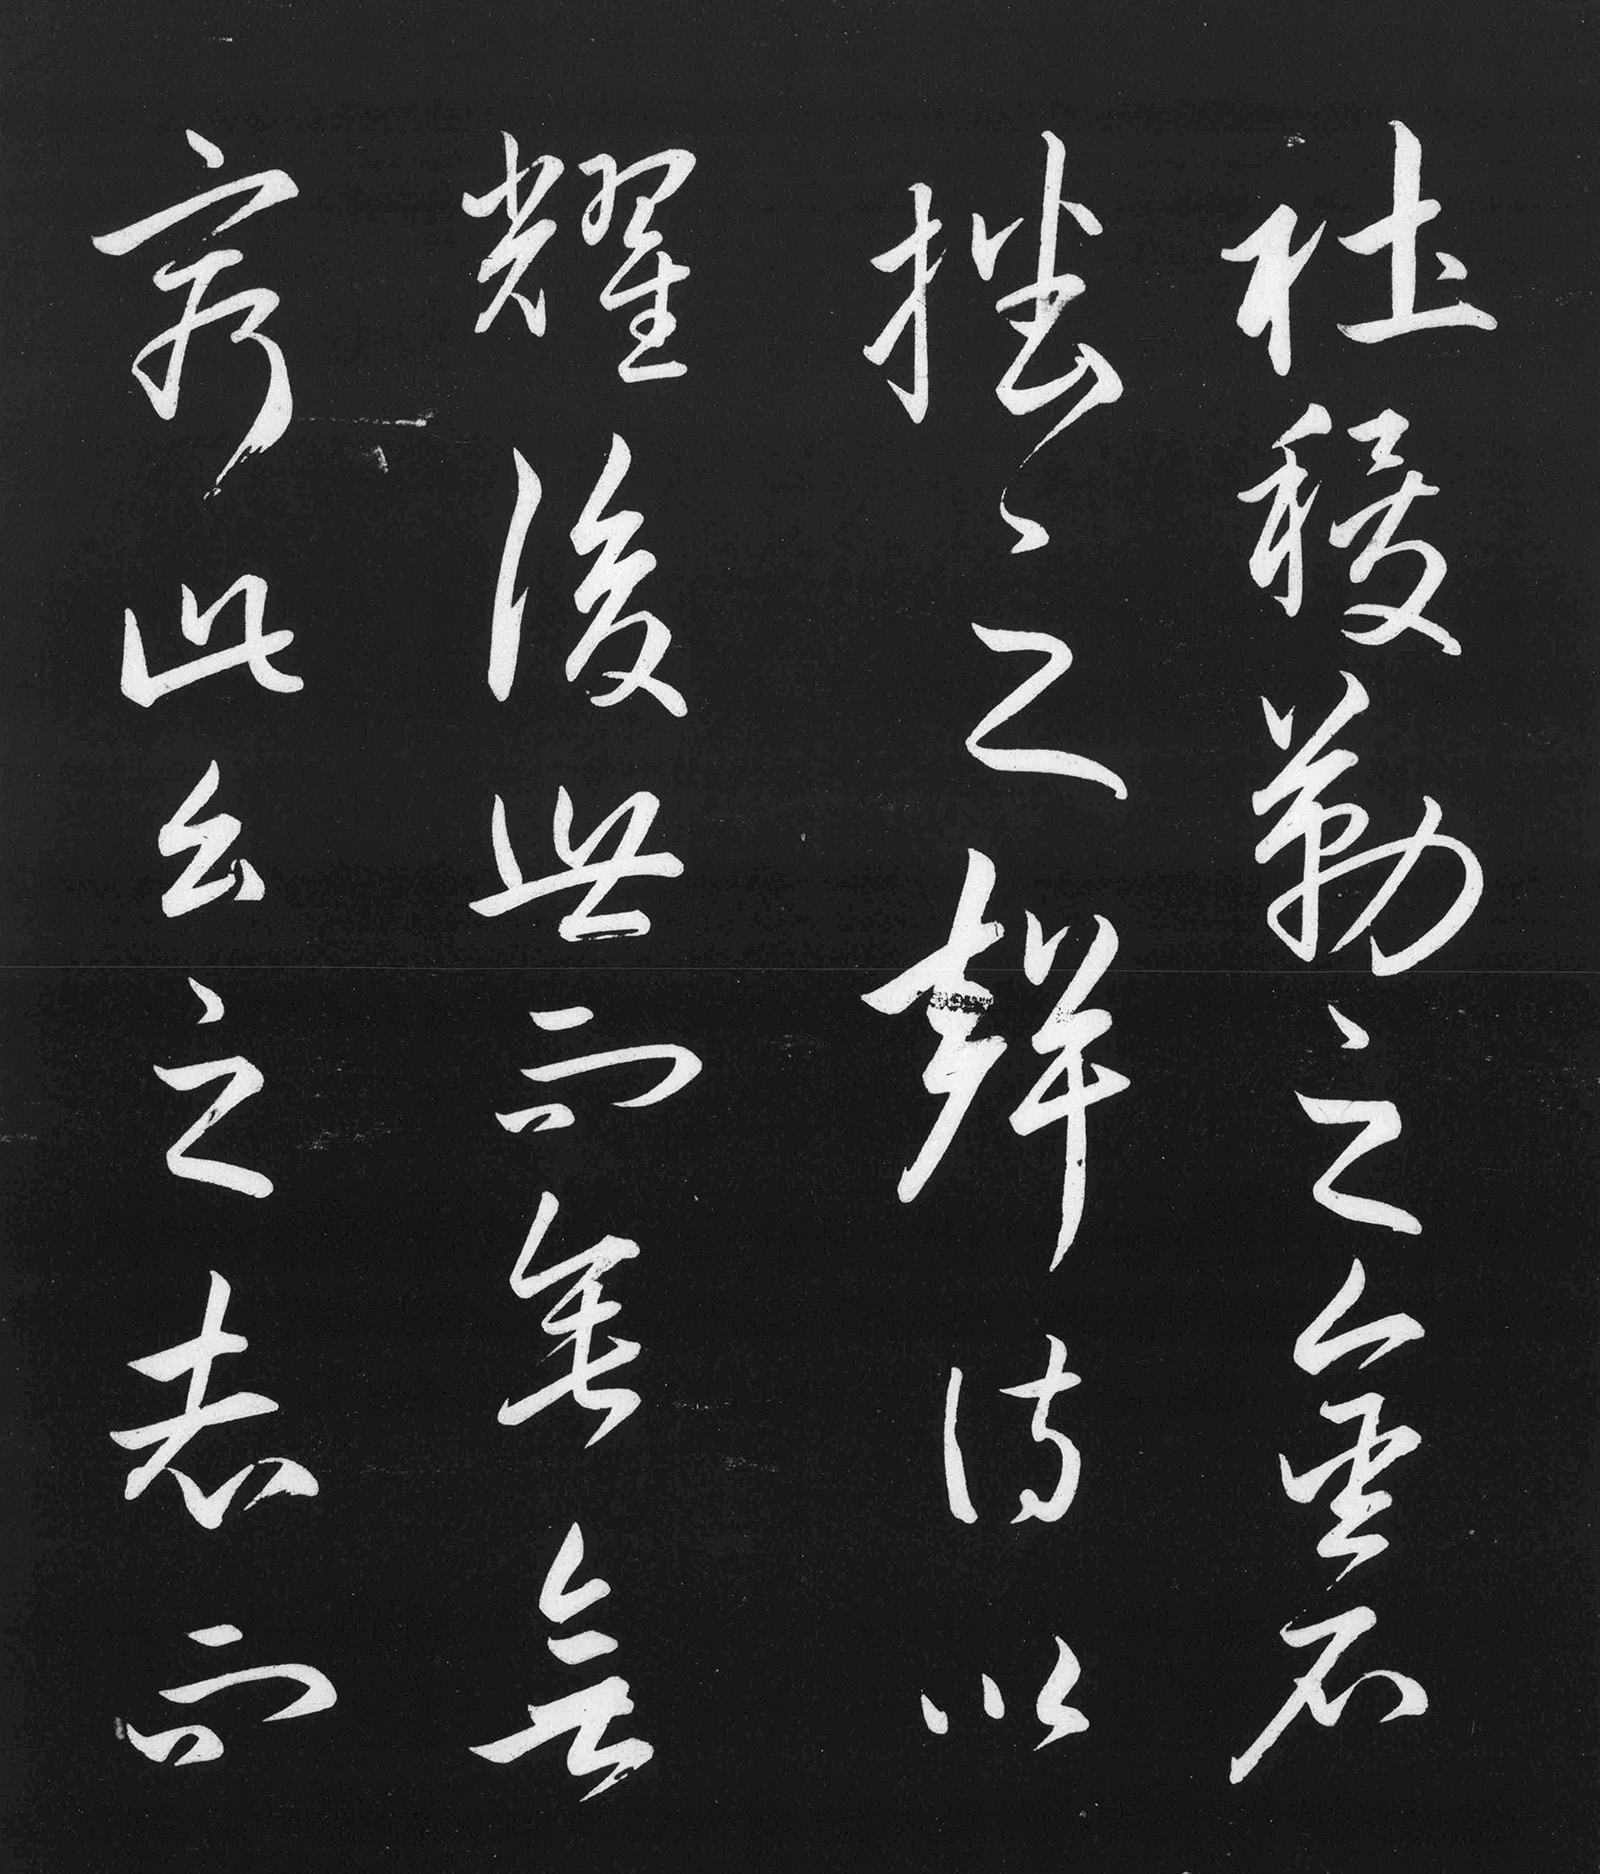 社稷勒之金石
播之聲詩以
耀後世而垂無
窮此公之志而